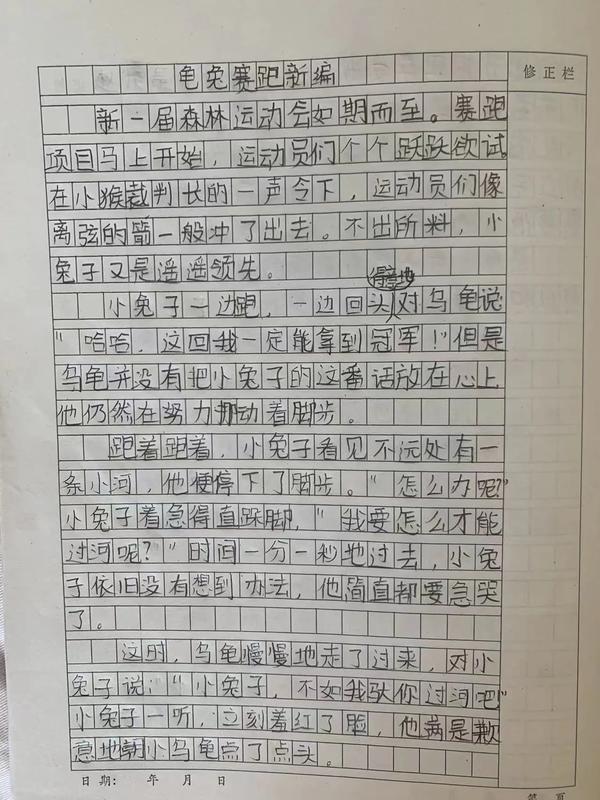 修正栏
龟兔赛跑新编
新一届森林运动会如期而至。赛跑
项目马上开始，运动员们个个跃跃欲试。
在小猴裁判长的一声令下，运动员们像
离弦的箭一般冲了出去。不出所料，小
兔子又是遥遥领先。
得意地
小兔子一边跑，一边回头对乌龟说：
“哈哈，这回我一定能拿到冠军！”但是
乌龟并没有把小兔子的这番话放在心上，
他仍然在努力挪动着脚步。
跑着跑着，小兔子看见不远处有一
条小河，他便停下了脚步。“怎么办呢？”
小兔子着急得直跺脚，“我要怎么才能
过河呢？”时间一分一秒地过去，小兔
子依旧没有想到办法，他简直都要急哭
了。
这时，乌龟慢慢地走了过来，对小
兔子说：“小兔子，不如我驮你过河吧！”
小兔子一听，立刻羞红了脸，他满是歉
意地朝小乌龟点了点头。
日期： 年 月 日
第 页